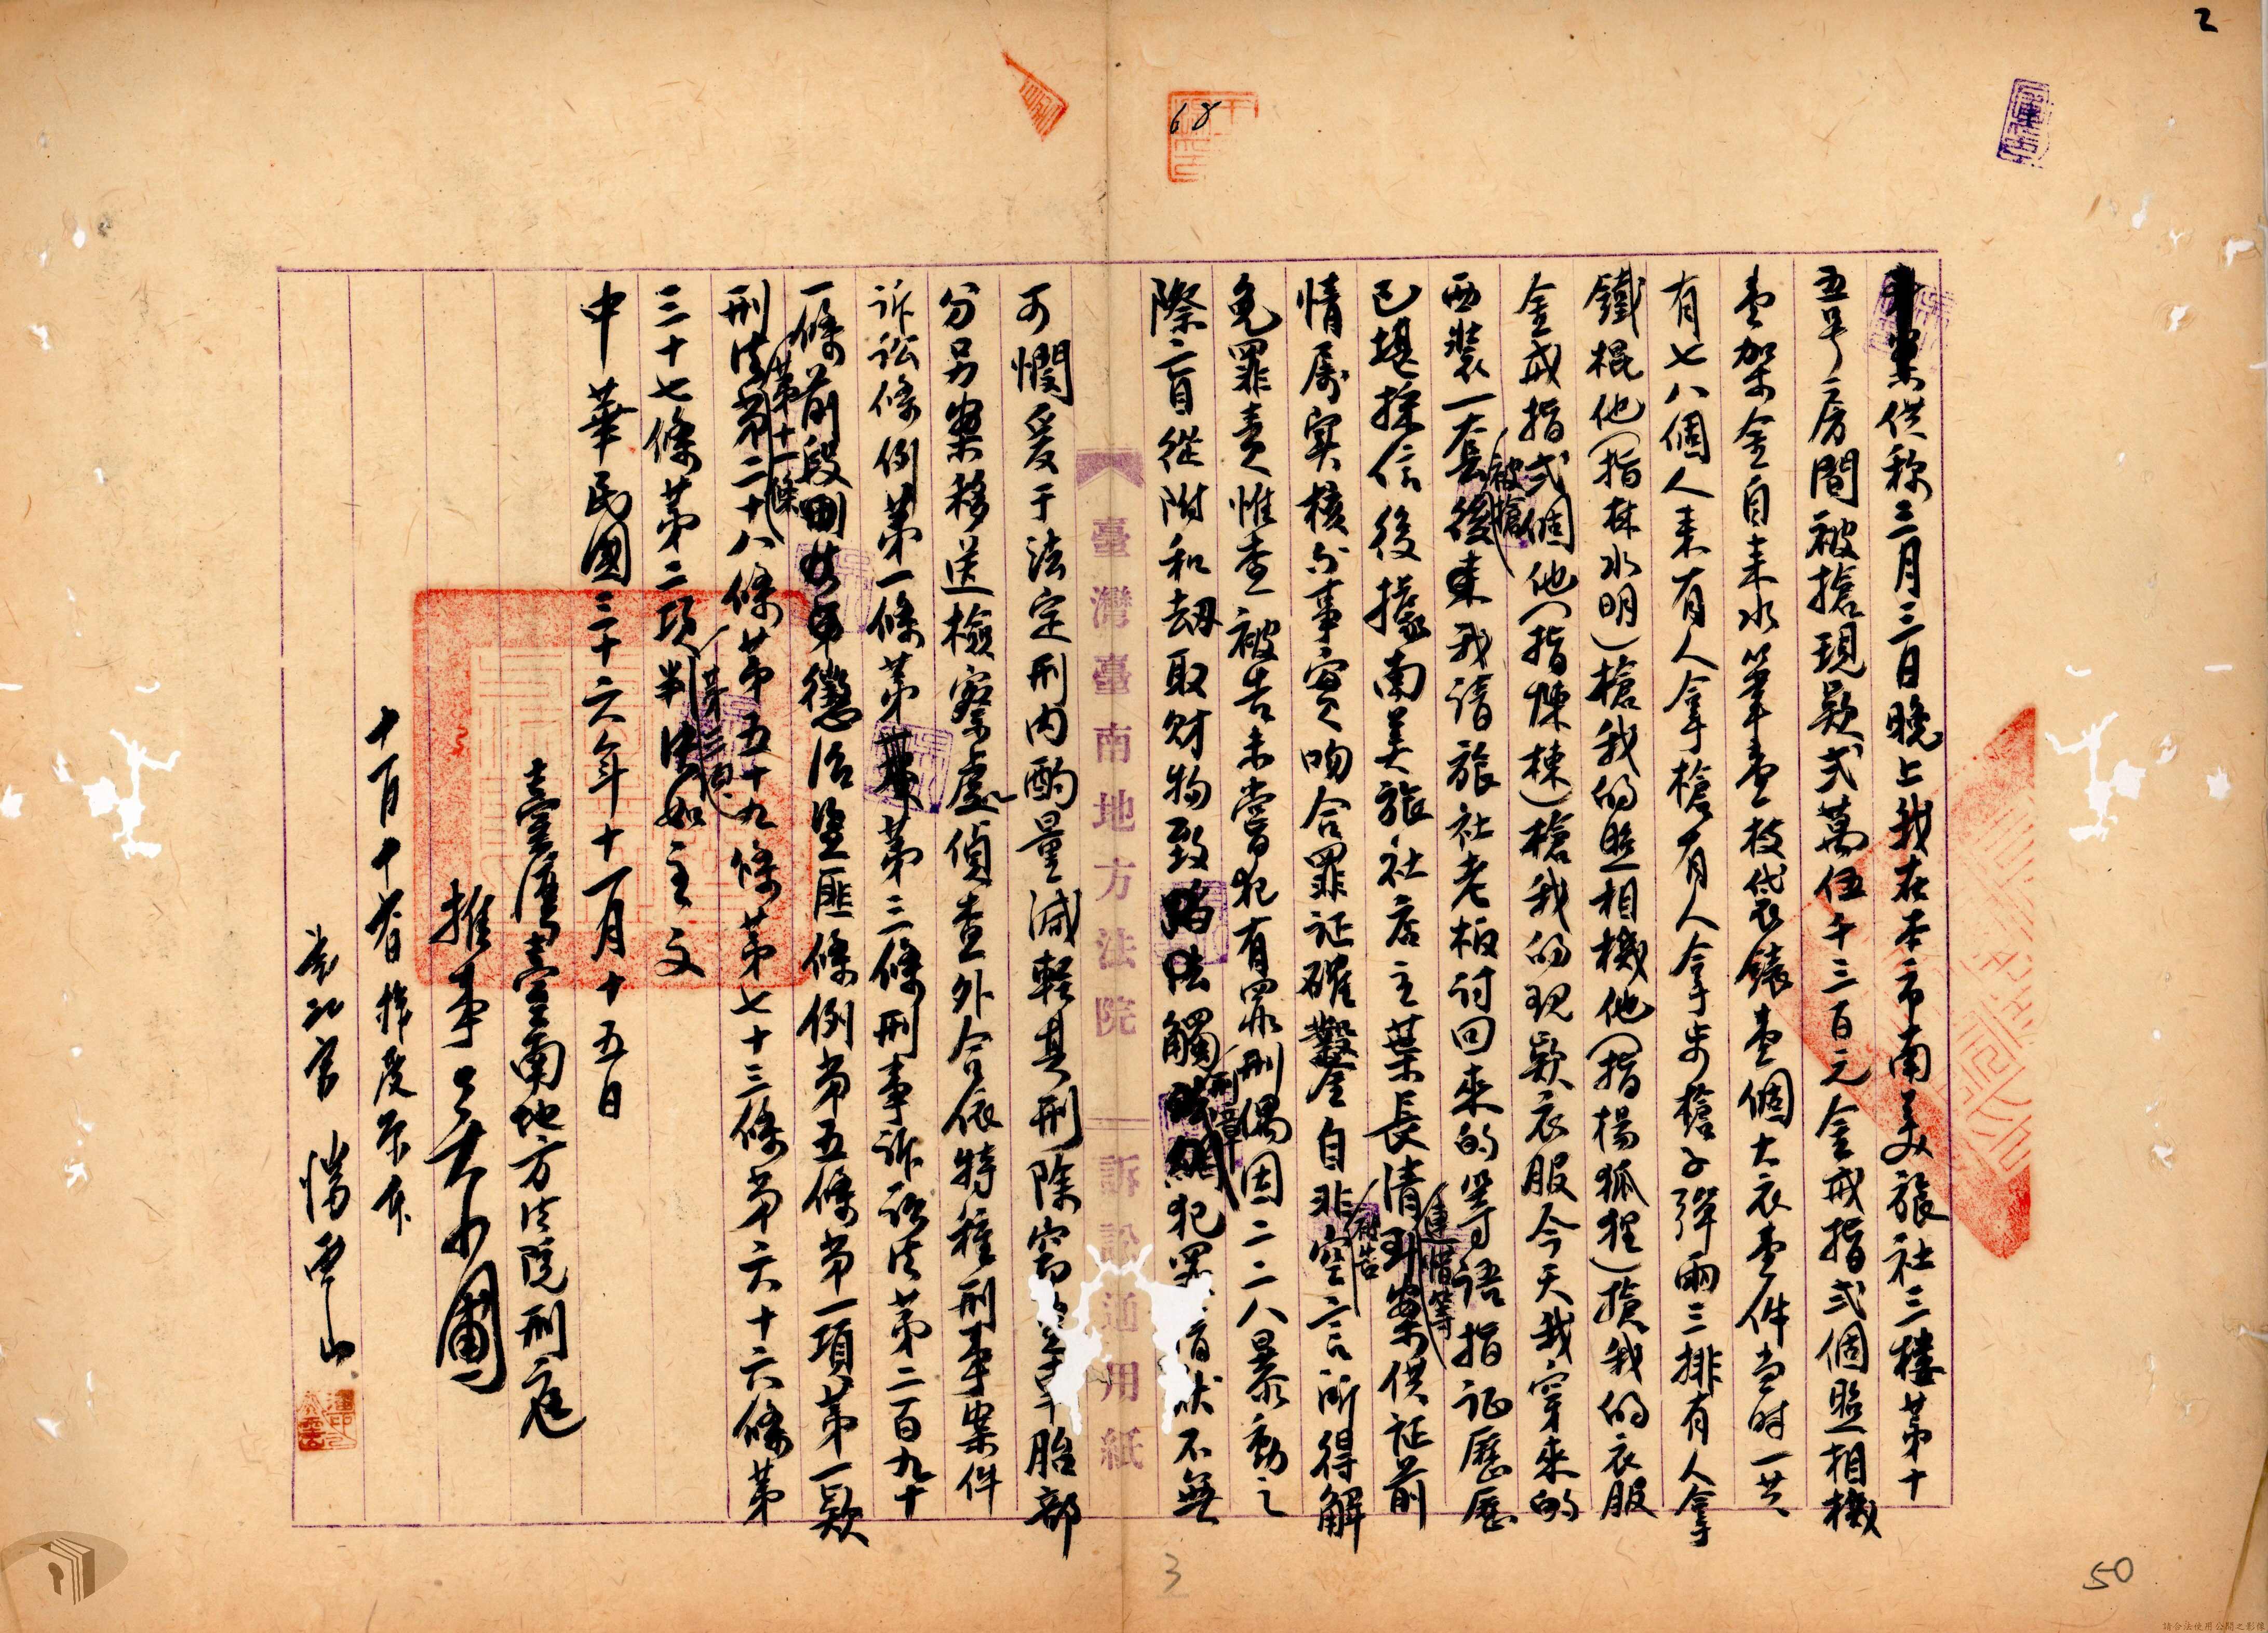 2
68
案供称三月三日晚上我在本市南美旅社三樓第十
五号房間被搶現款弍萬伍千三百元金戒指弍個照相機
壹架金自来水筆壹枝袋錶壹個大衣壹件当时一共
有七八個人来有人拿槍有人拿步槍子彈兩三排有人拿
鐵棍他(指林水明)搶我的照相機他(指楊狐狸)搶我的衣服
金戒指弍個他(指陳棟)搶我的现款衣服今天我穿来的
西装一套被搶後来我請旅社老板討回来的等語指证歷歷
已堪採信後據南美旅社店主葉長清到案供证前
情属实核与事實吻合罪证確鑿自非空言所得解
免罪責惟查被告未嘗犯有罪刑偶因二二八暴動之
際盲從附和刼取財物致觸刑章犯罪情狀不無
臺灣臺南地方法院 訴訟通用紙
可憫爰于法定刑内酌量減軽其刑除竊部
分另案移送檢察處偵查外合依特種刑事案件
訴訟條例第一條第三條刑事訴訟法第二百九十
一條前段懲治盜匪條例第五條第一項第一款
第十一條
刑法第二十八條第五十九條第七十三條第六十六條第
三十七條第二項判決如主文
中華民國三十六年十一月十五日
臺灣臺南地方法院刑庭
推事
書記官
3
50
請合法使用公開之影像